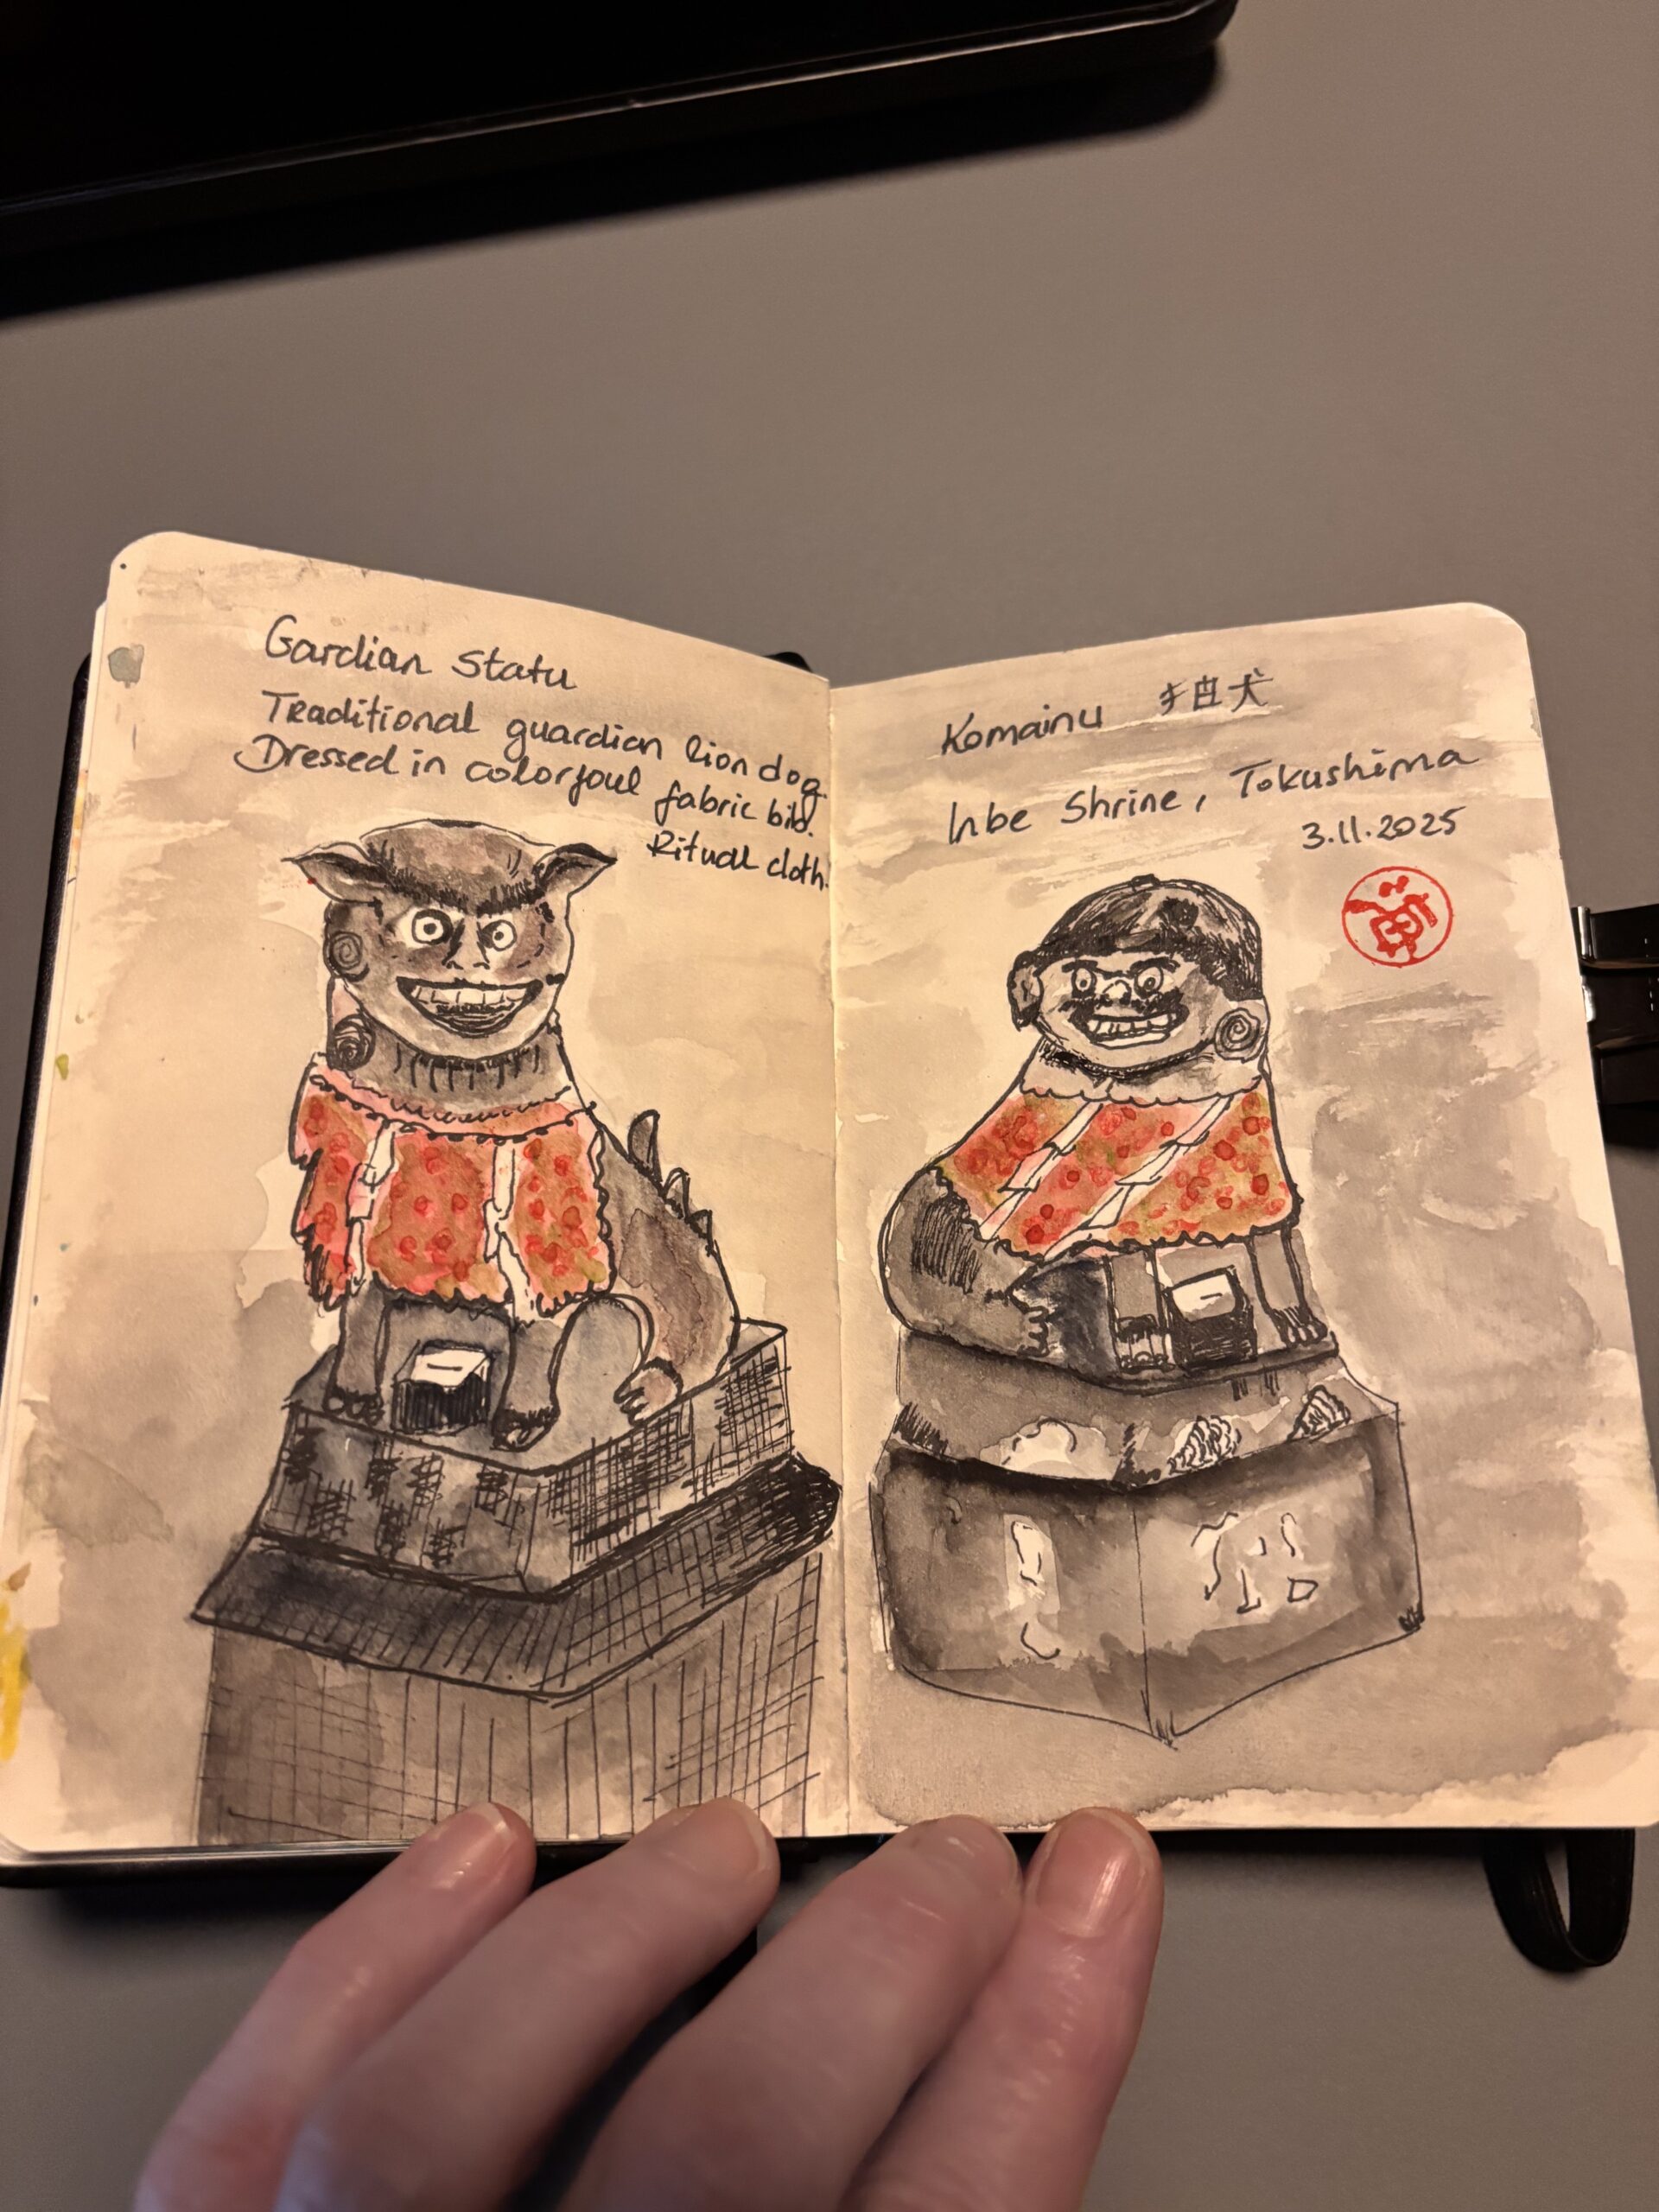 Gardian Statu
Traditional guardian lion dog.
Dressed in colorfoul fabric bib.
Ritual cloth.
Komainu 狛犬
Inbe Shrine, Tokushima
3.11.2025